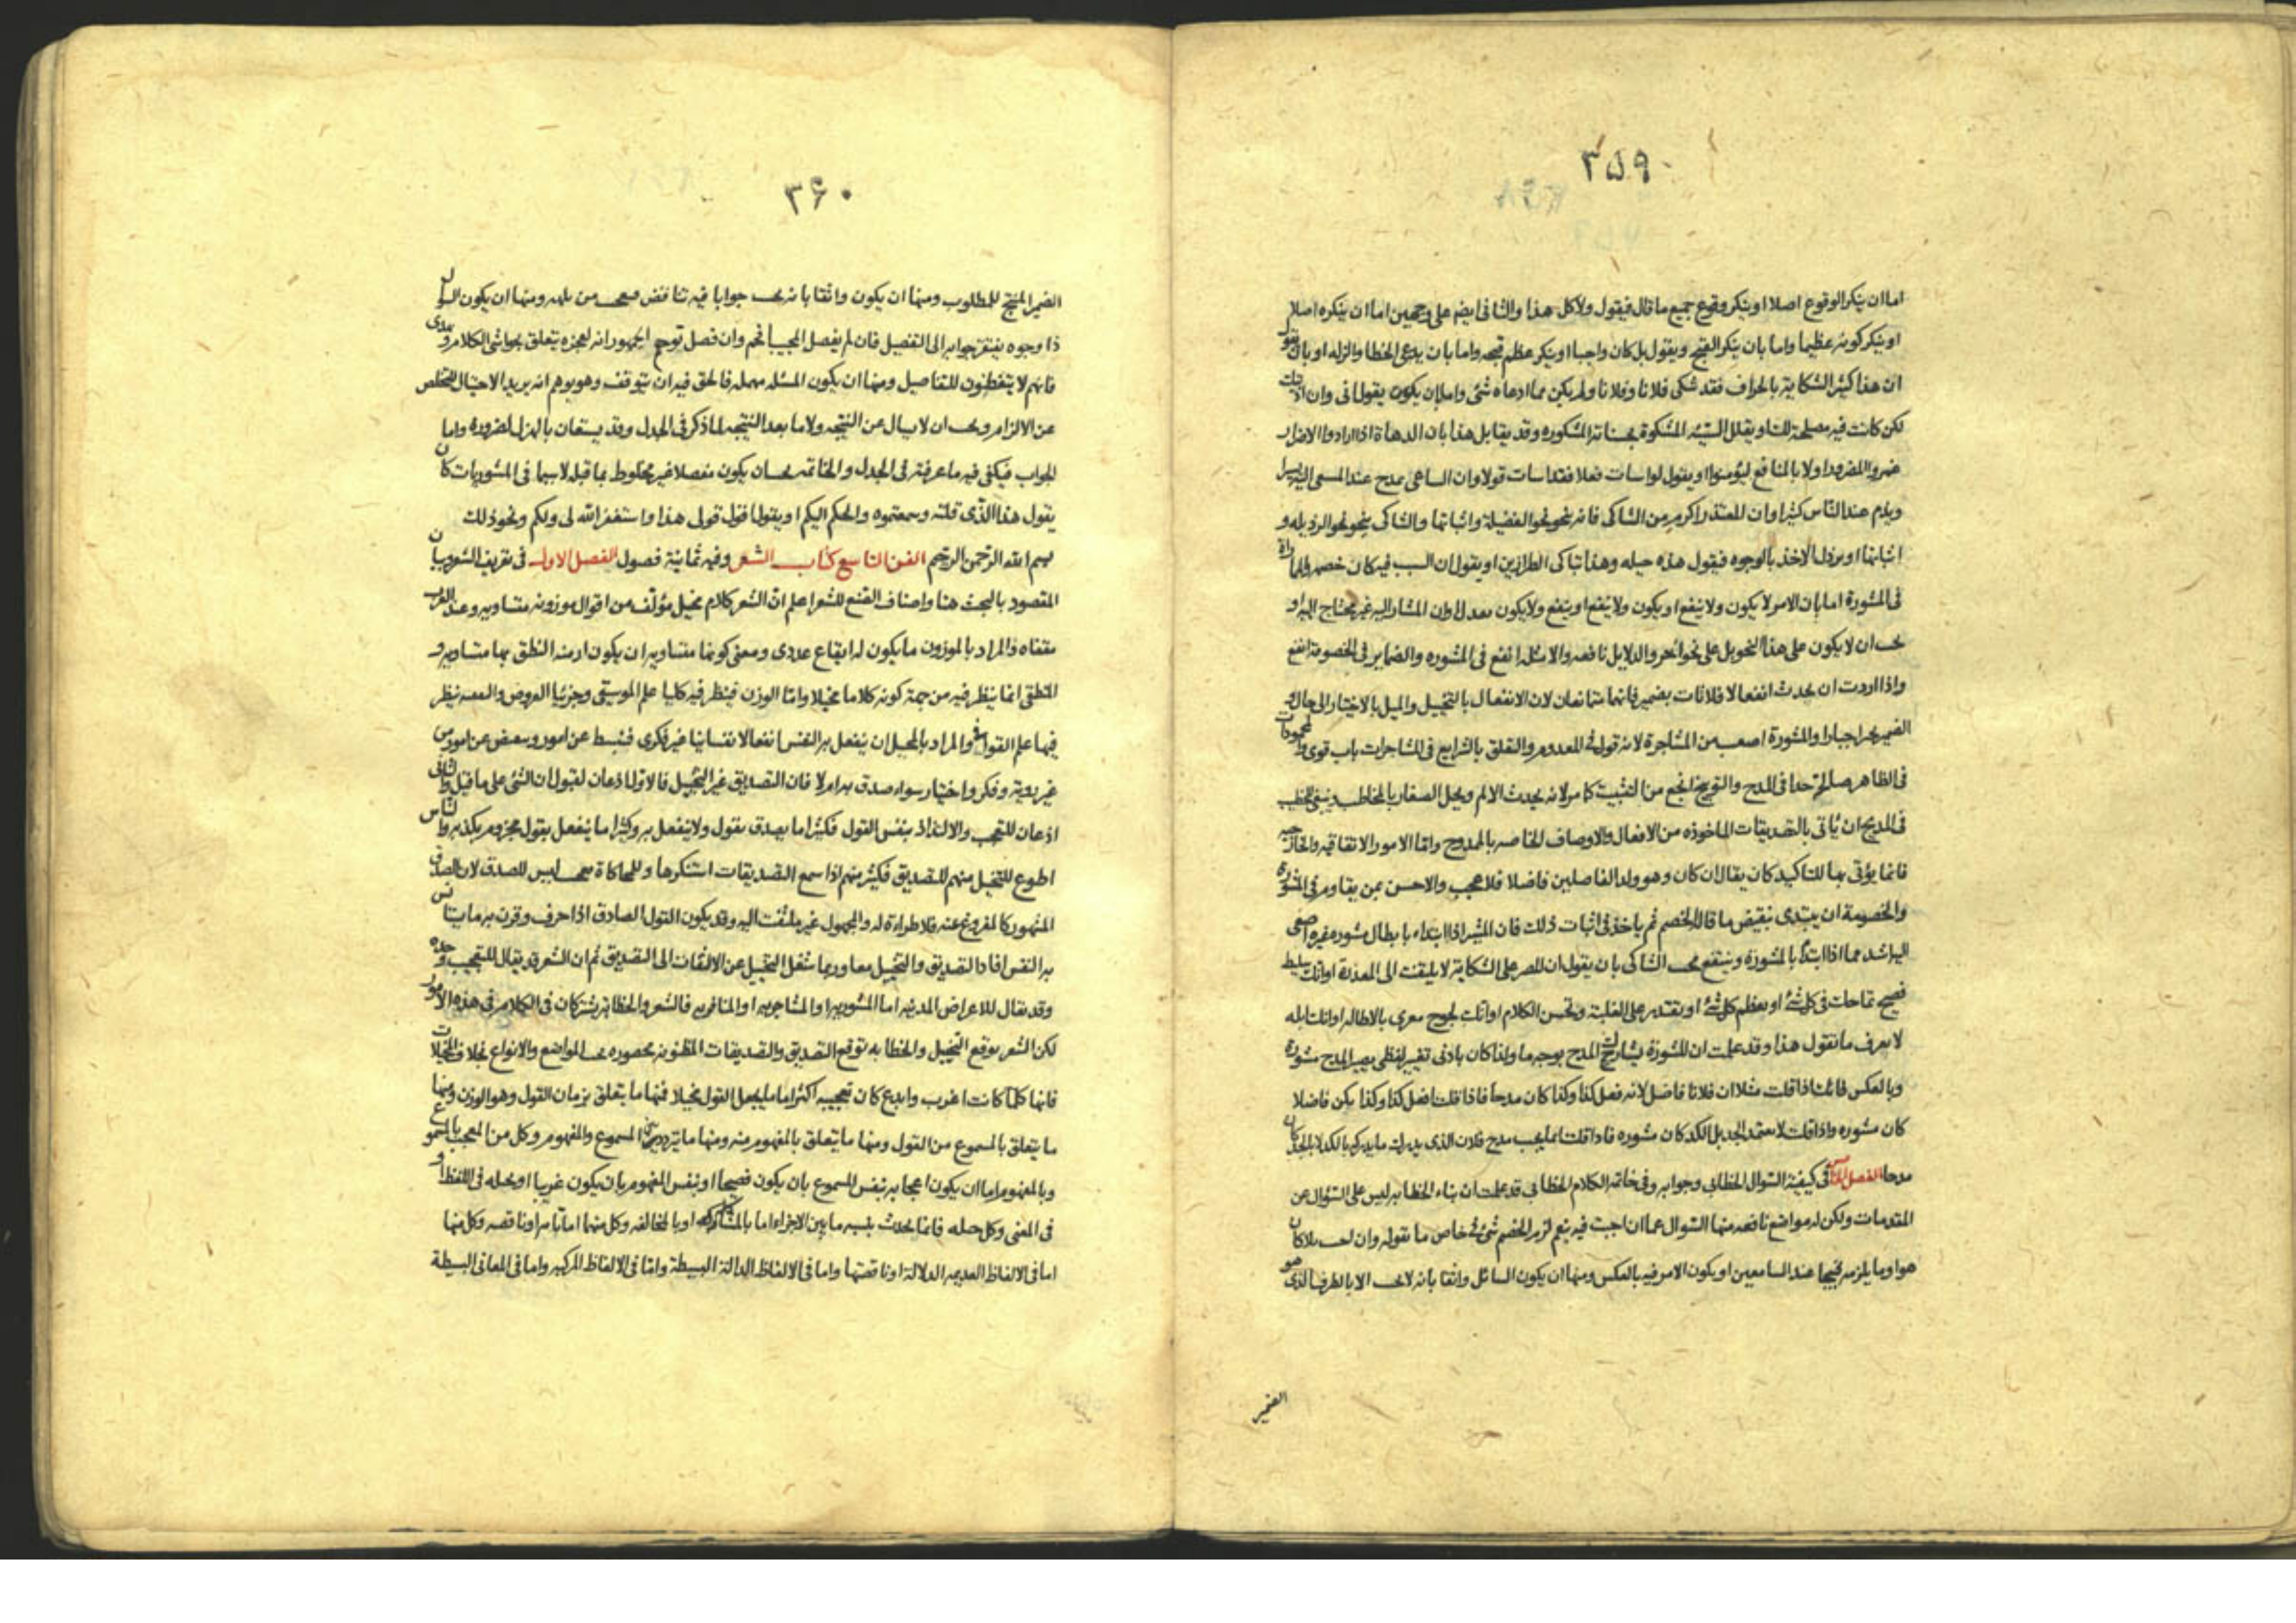 ٣٥٩
اما ان ينكر الوقوع اصلا او ينكر وقوع جميع ما قال فيقول ولا كل هذا والثانى ايضم على وجهين اما ان ينكره اصلا
او ينكر كونه عظيما واما بان ينكر القبح ويقول بل كان واجبا او ينكر عظم قبحه واما بان يدعى الخطا والزله او بان يقول
ان هذا كثير الشكاية بالجزاف فقد شكى فلانا وفلانا ولم يكن مما ادعاه شئ واما بان يكون يقول انى وان
لكن كانت فيه مصلحة لك او يقلل السيئه المشكوة بحسناته المشكوره وقد يقابل هذا بان الدهاة اذا ارادوا الاضرار
اولا بالمنافع ليؤمنوا او يقول لو اسات فعلا فقد اسات قولا وان الساعى يمدح عند المسعى اليه يسرا
ويذم عند الناس كثيرا وان المعتذر اكرم من الشاكى فانه نحو نحو الفضيلة واثباتها والشاكى ينحو نحو الرذيله و
اثباتها او يرذل الاخذ بالوجوه فيقول هذه حيله وهذا تباكى الطرارين او يقول ان السبب فيه كان خصمه
فى المشورة اما بان الامر لا يكون ولا ينفع او يكون ولا ينفع او ينفع ولا يكون عدلا وان المشار اليه غير محتاج اليه و
يجب ان لا يكون على هذا التحويل على نحو اخر والدلايل نافعه والامثله انفع فى المشوره والضماير فى الخصومة انفع
واذا اردت ان يحدث انفعالا فلا تات بضمير فانهما متمانعان لان الانفعال بالتخييل والميل بالاختيار الى حال و
الضمير اجبارا والمشورة اصعب من المشاجرة لانه قول فى المعدوم والتعلق بالشرايع فى المشاجرات باب قوى والمحمودات
فى الظاهر جدا فى المدح والتوبيخ انجع من التثبيت كما مر لانه يحدث الالم ويحل الصغار بالمخاطب وينبغى للخطيب
فى المديح ان ياتى بالتصديقات الماخوذه من الافعال والاوصاف الخاصه بالممدوح واما الامور الاتفاقيه والخارجيه
فانما يؤتى بها للتاكيد كان يقال ان كان وهو ولد الفاضلين فاضلا فلا عجب والاحسن بمن يقاوم فى المشورة
والخصومة ان يبتدى بنقيض ما قاله الخصم ثم ياخذ فى اثبات ذلك فان المشير اذا ابتداء بابطال مشورة غيره
اليه اشد مما اذا ابتدأ بالمشورة وينتفع الشاكى بان يقول ان المصر على الشكاية لا يلتفت الى المعذرة او انك سليط
فصيح تماحك فى كل شئ او يعظم كل شئ او يقتدر على الغلبة وتحسن الكلام او انك لجوج مغرى بالاطاله او انك ابله
لا يعرف ما تقول هذا وقد علمت ان المشورة يشارك المدح بوجه ما ولذا كان بادنى تغيير لفظى يصير المدح مشورة
وبالعكس فانك اذا قلت مثلا ان فلانا فاضل لانه فعل كذا وكذا كان مدحا فاذا قلت افعل كذا وكذا يكن فاضلا
كان مشوره واذا قلت لا يعتمد الجد بل الكد كان مشوره فاذا قلت انما يجب مدح فلان الذى يدرك ما يدركه بالكد لا بالجد كان
مدحا الفصل الخامس فى كيفية السوال الخطابى وجوابه وفى خاتمه الكلام الخطابى قد علمت ان بناء الخطابه ليس على السؤال عن
المقدمات ولكن له مواضع نافعه منها السوال عما ان اجبت فيه بنعم لزم الخصم شئ خاص ما تقوله وان اجب بلا كان
هو او ما يلزمه قبيحا عند السامعين او يكون الامر فيه بالعكس ومنها ان يكون السائل واثقا بانه لا يجب الا بالطرف الذى هو
الضمير
٣۶٠
الضمير المنتج للمطلوب ومنها ان يكون واثقا بانه يجب جوابا فيه تناقض من بلهه ومنها ان يكون السوال
ذا وجوه يفتقر جوابه الى التفصيل فان لم يفصل المجيب افحم وان فصل توهم الجمهور انه لعجزه يتعلق بحواشى الكلام و
فانهم لا يتفطنون للتفاصيل ومنها ان يكون المسئله مهمله فالحق فيه ان يتوقف وهو يوهم انه يريد الاحتيال للتخلص
عن الالزام ويجب ان لا يسال عن النتيجه ولا ما بعد النتيجه لما ذكر فى الجدل وقد يستعان بالهزل لضرورة واما
الجواب فيكفى فيه ما عرفته فى الجدل والخاتمه يجب ان يكون مفصلا غير مخلوط بما قبله لا سيما فى المشوريات كان
يقول هذا الذى قلته وسمعتموه والحكم اليكم او يقول اقول قولى هذا واستغفر الله لى ولكم ونحو ذلك
بسم الله الرحمن الرحيم الفن التاسع كتاب الشعر وفيه ثمانية فصول الفصل الاول فى تعريف الشعر وبيان
المقصود بالبحث هنا واصناف الصنع للشعر اعلم ان الشعر كلام مخيل مؤلف من اقوال موزونه متساويه وعند العرب
مقفاه والمراد بالموزون ما يكون له ايقاع عددى ومعنى كونها متساويه ان يكون ازمنه النطق بها متساويه و
المنطقى انما ينظر فيه من جهة كونه كلاما مخيلا واما الوزن فينظر فيه كليا علم الموسيقى وجزئيا العروض والقفيه ينظر
فيها علم القوافى والمراد بالمخيل ان ينفعل به النفس انفعالا نفسانيا غير فكرى فتبسط عن امور وينقبض عن امور من
غير روية وفكر واختيار سواء صدق به ام لا فان التصديق غير التخييل فالاول اذعان لقبول ان الشئ على ما قيل والثانى
اذعان للتعجب والالتذاذ بنفس القول فكثيرا ما يصدق بقول ولا ينفعل به وكثيرا ما ينفعل بقول مجزوم بكذبه والناس
اطوع للتخيل منهم للتصديق فكثير منهم اذا سمع التصديقات استنكرها وللمحاكاة ليس للصدق لان الصدق
المشهور كالمفروغ عنه فلا طراءة له والمجهول غير ملتفت اليه وقد يكون القول الصادق اذا حرف وقرن به ما يستانس
به النفس افاد التصديق والتخييل معا وربما شغل التخييل عن الالتفات الى التصديق ثم ان الشعر قد يقال للتعجب وحده
وقد يقال للاعراض المدنيه اما المشوريه او المشاجريه او المنافريه فالشعر والخطابه يشتركان فى الكلام فى هذه الامور
لكن الشعر يوقع التخييل والخطابه توقع التصديق والتصديقات المظنونه محصوره المواضع والانواع بخلاف التخيلات
فانها كلما كانت اغرب وابدع كان تعجيبه اكثر اما ما يجعل القول مخيلا فمنها ما يتعلق بزمان القول وهو الوزن ومنها
ما يتعلق بالمسموع من القول ومنها ما يتعلق بالمفهوم منه ومنها ما يتردد بين المسموع والمفهوم وكل من المعجب بالمسموع
وبالمفهوم اما ان يكون اعجابه بنفس المسموع بان يكون فصيحا او بنفس المفهوم بان يكون غريبا او بحيله فى اللفظ او
فى المعنى وكل حيله فانما يحدث بنسبه ما بين الاجزاء اما بالمشاكله او بالمخالفه وكل منهما اما تامه او ناقصه وكل منها
اما فى الالفاظ العديمه الدلالة او ناقصتها واما فى الالفاظ الدالة البسيطة واما فى الالفاظ المركبه واما فى المعانى البسيطة